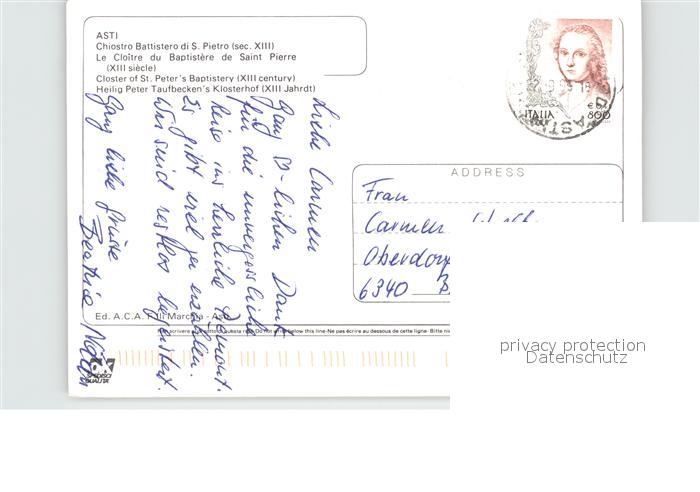 ASTI
Chiostro Battistero di S. Pietro (sec. XIII)
Le Cloître du Baptistère de Saint Pierre
(XIII siècle)
Closter of St. Peter's Baptistery (XIII century)
Heilig Peter Taufbecken's Klosterhof (XIII Jahrdt)
ITALIA
€
800
ASTI
ADDRESS
Frau
Carmen
Oberdorf
6340
Liebe Carmen
Ganz ♡-lichen Dank
für die unvergessliche
Reise ins herrliche Piemont.
Es gibt viel zu erzählen.
Wir sind restlos begeistert.
Ganz liebe Grüsse
Beatrice
Ed. A.C.A. F.lli Marchia - Asti
scrivere sotto questa riga-Do not write below this line-Ne pas écrire au dessous de cette ligne-Bitte
privacy protection
Datenschutz